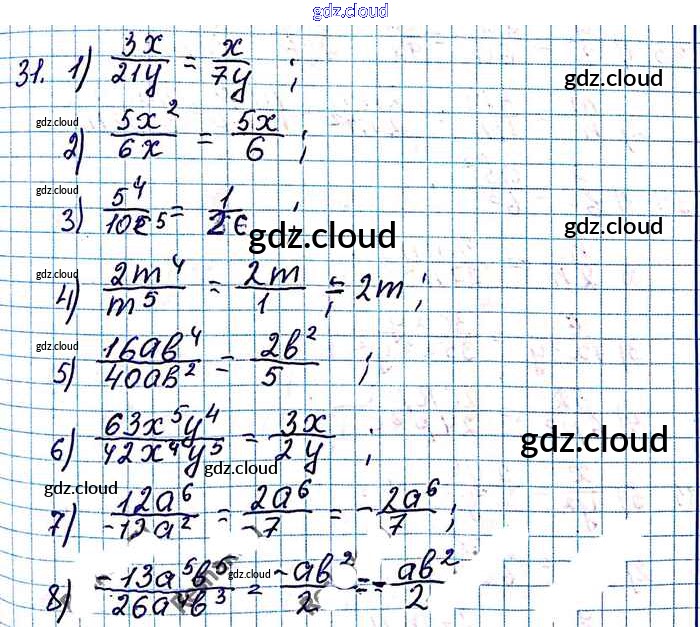 gdz.cloud
31. 1) 3x/21y = x/7y ;
gdz.cloud
gdz.cloud
2) 5x²/6x = 5x/6 ;
gdz.cloud
3) 5⁴/10c⁵ = 1/2c ;
gdz.cloud
gdz.cloud
gdz.cloud
4) 2m⁴/m⁵ = 2m/1 = 2m ;
gdz.cloud
5) 16ab⁴/40ab² = 2b²/5 ;
6) 63x⁵y⁴/42x⁴y⁵ = 3x/2y ;
gdz.cloud
gdz.cloud
gdz.cloud
7) 12a⁶/-12a² = 2a⁶/-7 = -2a⁶/7 ;
8) -13a⁵b⁵/26a⁴b³ = -ab²/2 = -ab²/2
gdz.cloud